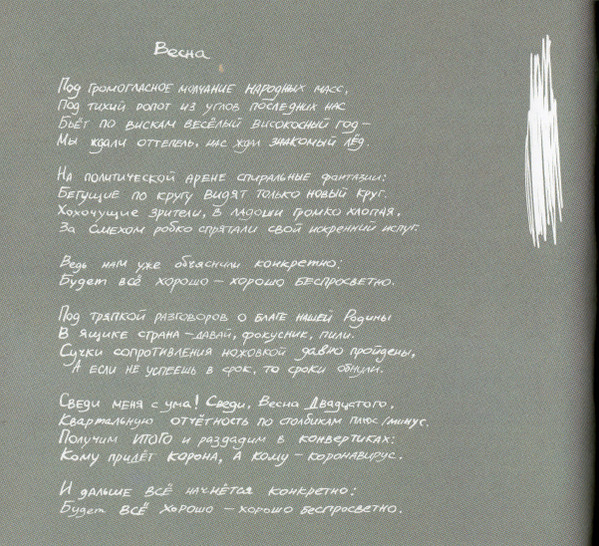 Весна
Под громогласное молчание народных масс,
Под тихий ропот из углов последних нас
Бьёт по вискам весёлый високосный год –
Мы ждали оттепель, нас ждал знакомый лёд.
На политической арене спиральные фантазии:
Бегущие по кругу видят только новый круг.
Хохочущие зрители, в ладоши громко хлопая,
За смехом робко спрятали свой искренний испуг.
Ведь нам уже объяснили конкретно:
Будет всё хорошо – хорошо беспросветно.
Под тряпкой разговоров о благе нашей Родины
В ящике страна – давай, фокусник, пили.
Сучки сопротивления ножовкой давно пройдены,
А если не успеешь в срок, то сроки обнули.
Сведи меня с ума! Сведи, Весна Двадцатого,
Квартальную отчётность по столбикам плюс/минус.
Получим ИТОГО и раздадим в конвертиках:
Кому придёт корона, а кому – коронавирус.
И дальше всё начнётся конкретно:
Будет всё хорошо – хорошо беспросветно.